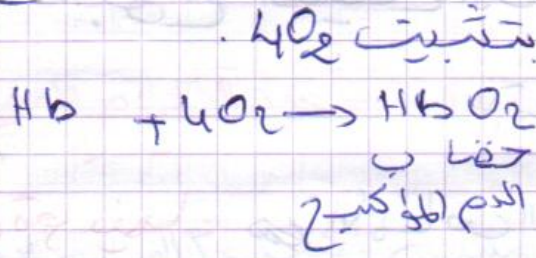 بتثبيت 4O₂.
Hb + 4O₂ → HbO₂
خضاب
الدم المؤكسج